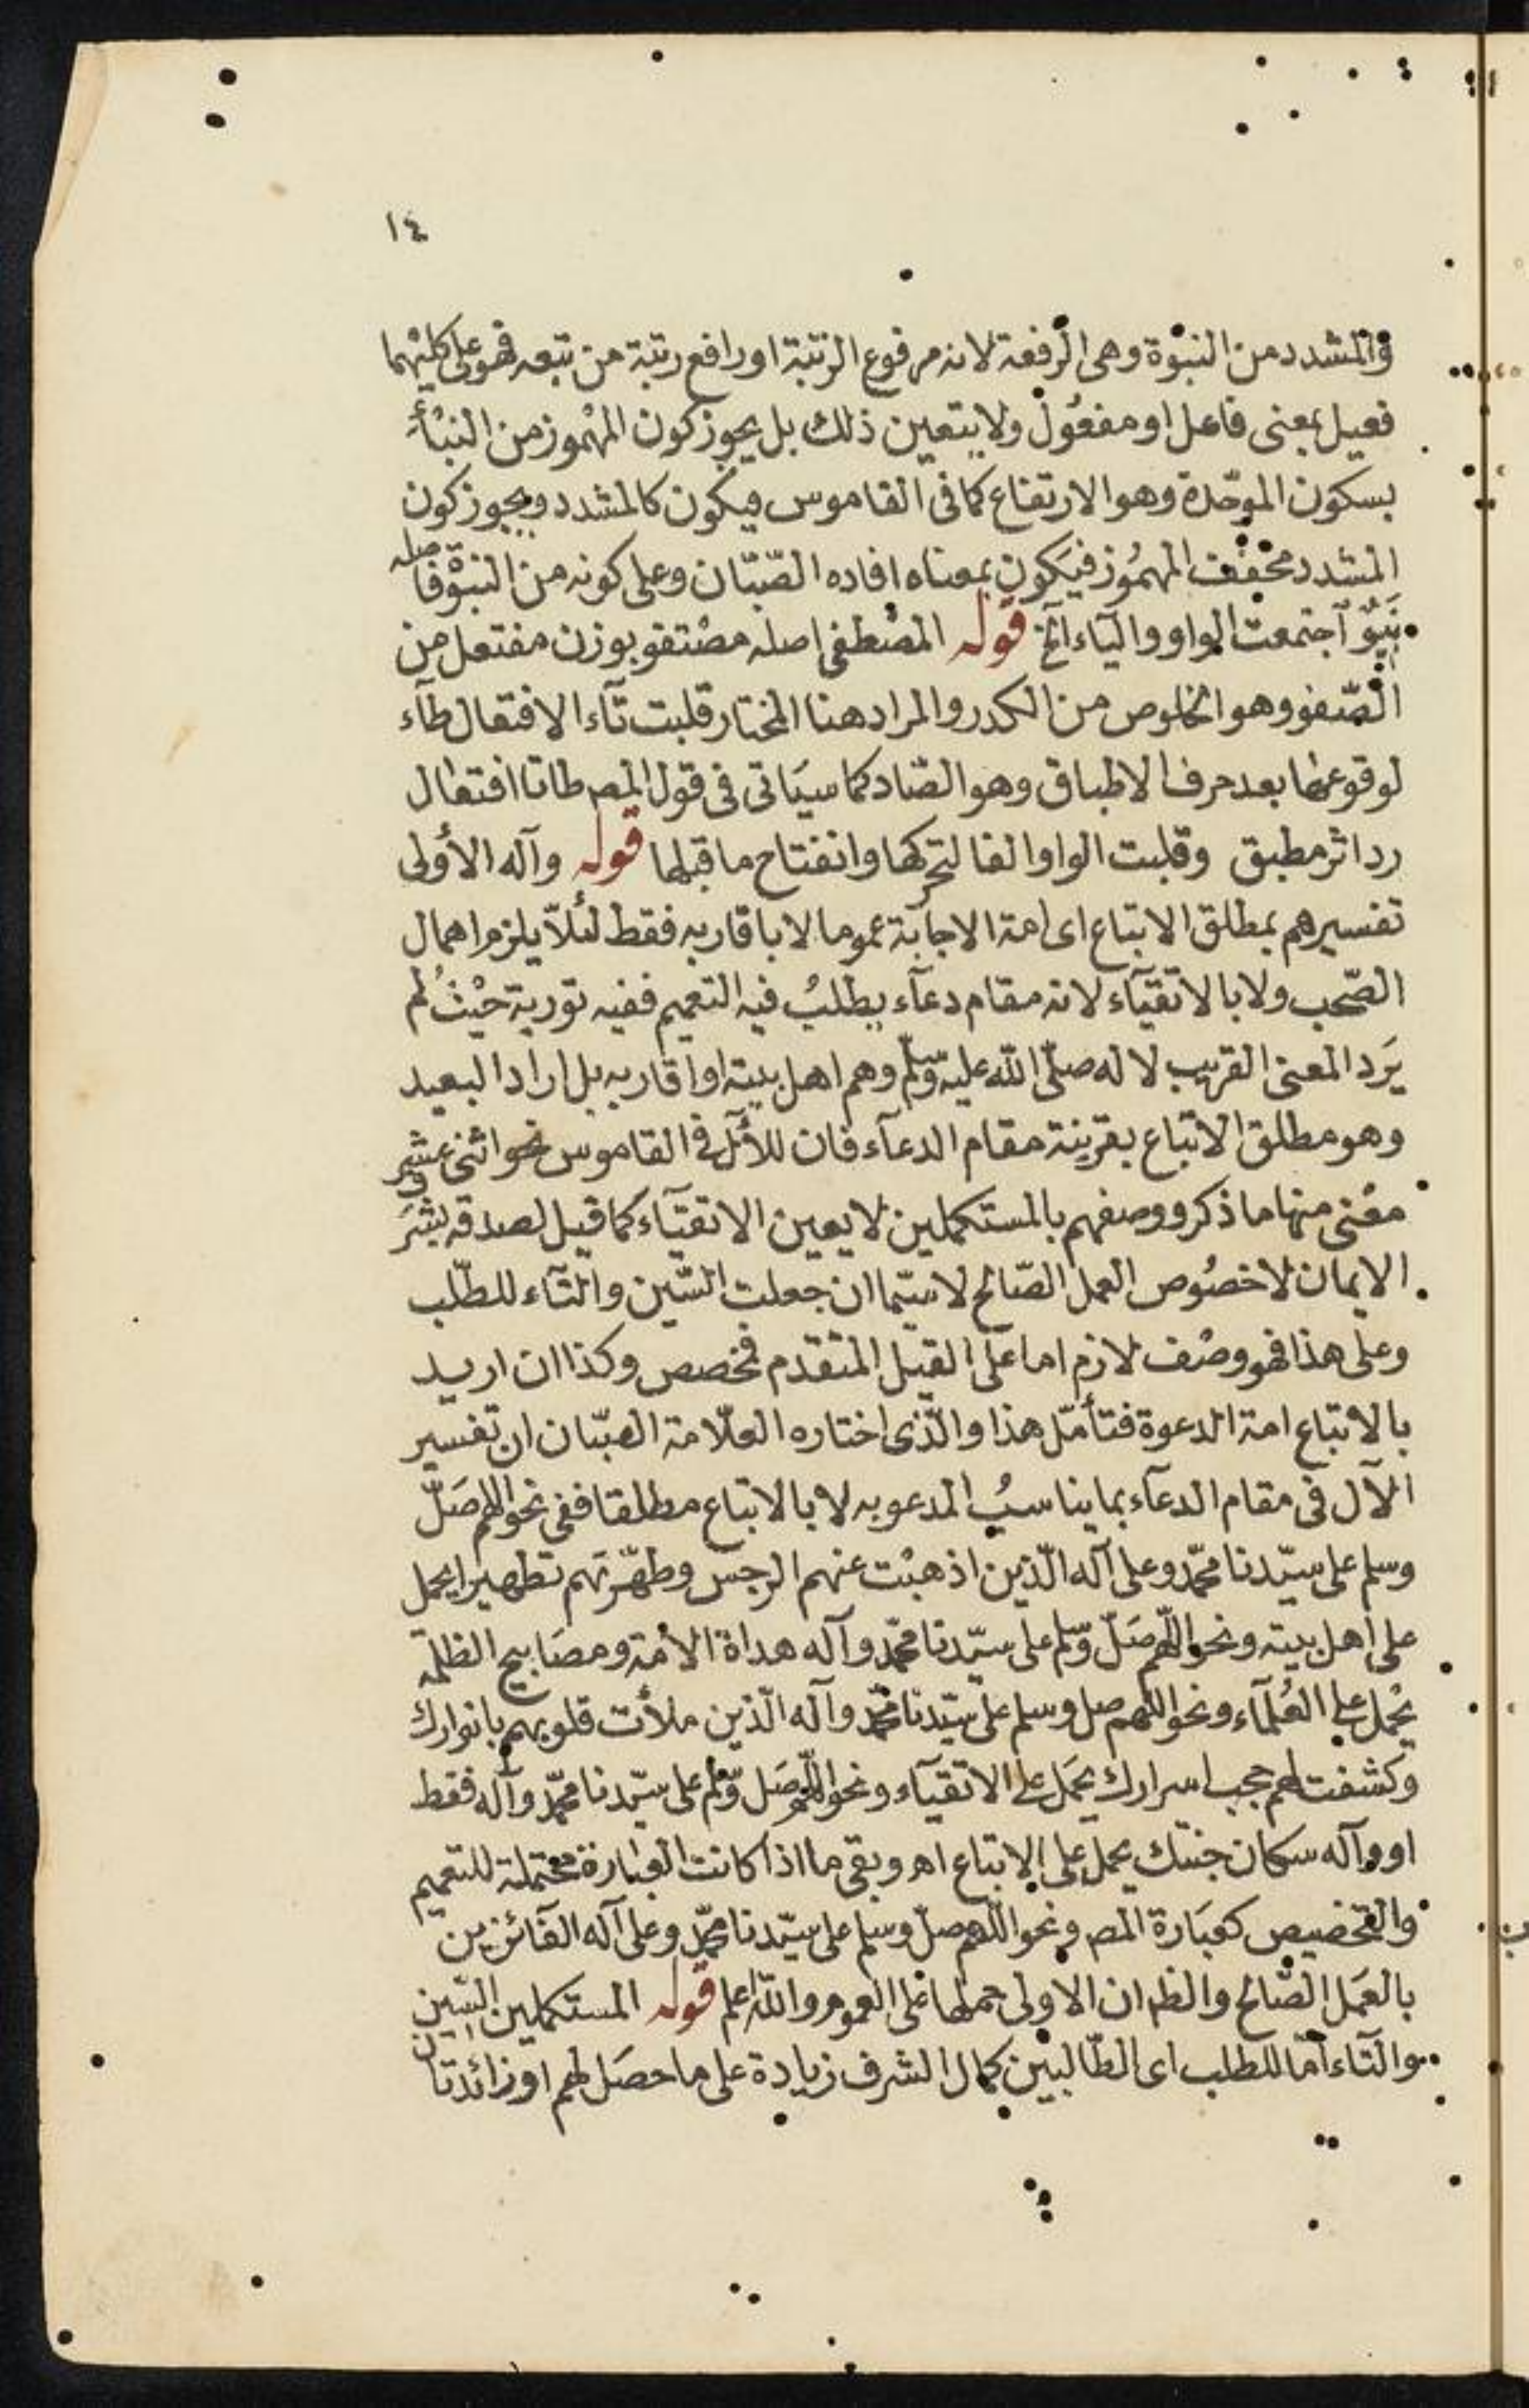 ١٤
والمشدد من النبوة وهى الرفعة لانه مرفوع الرتبة او رافع رتبة من تبعه فهو على كليهما
فعيل بمعنى فاعل او مفعول ولا يتعين ذلك بل يجوز كون المهموز من النبأ
بسكون الموحّدة وهو الارتفاع كما فى القاموس فيكون كالمشدد ويجوز كون
المشدد مخفف المهموز فيكون بمعناه افاده الصّبّان وعلى كونه من النبوة فاصله
نَبِيْوٌ اجتمعت الواو والياء الخ قوله المصطفى اصله مصتفو بوزن مفتعل من
الصّفو وهو الخلوص من الكدر والمراد هنا المختار قلبت تاء الافتعال طآء
لوقوعها بعد حرف الاطباق وهو الصّاد كما سيَاتى فى قول المص طا تا افتعال
رد اثر مطبق وقلبت الواو الفا لتحركها وانفتاح ما قبلها قوله وآله الأولى
تفسيرهم بمطلق الاتباع اى امة الاجابة عموما لا باقاربه فقط لئلّا يلزم اهمال
الصّحب ولا بالاتقيآء لانه مقام دعآء يطلبُ فيه التعميم ففيه تورية حيْثُ لم
يَرد المعنى القريب لآله صلّى الله عليه وسلّم وهم اهل بيته او اقاربه بل اراد البعيد
وهو مطلق الاتباع بقرينة مقام الدعآء فان للأل فى القاموس نحو اثنى عشر
معْنى منها ما ذكر ووصفهم بالمستكملين لا يعين الاتقيآء كما قيل لصدقه بشرَف
الايمان لا خصُوص العمل الصّالح لا سيّما ان جعلت السّين والتآء للطّلب
وعلى هذا فهو وصْف لازم اما على القيل المتقدم فمخصص وكذا ان اريد
بالاتباع امة الدعوة فتأمّل هذا والّذى اختاره العلّامة الصبّان ان تفسير
الآل فى مقام الدعآء بما يناسبُ المدعو به لا بالاتباع مطلقا ففى نحو اللهم صَلّ
وسلم على سيّدنا محمّد وعلى آله الّذين اذهبْت عنهم الرجس وطهّرتَهم تطهيرا يحمل
على اهل بيته ونحو اللّهم صَلّ وسّلم على سيّدنا محمّد وآله هداة الأمّة ومصَابيح الظلمة
يحْمل على العُلمآء ونحو اللّهم صل وسلم على سيّدنا محمّد وآله الّذين ملأت قلوبهم بانوارك
وكشفت لهم حجب اسرارك يحمَل على الاتقيآء ونحو اللّهم صَل وسّلم على سيّدنا محمّد وآله فقط
او وآله سكان جنتك يحمل على الاتباع اهـ وبقى ما اذا كانت العبارة محتملة للتعميم
والتخصيص كعبَارة المص ونحو اللّهم صلّ وسلم على سيّدنا محمّد وعلى آله الفآئزين
بالعَمل الصّالح والظ ان الاولى حملها على العموم والله اعلم قوله المستكملين السّين
والتاء امّا للطلب اى الطّالبين كمال الشرف زيادة على ما حصَل لهم او زائدتان